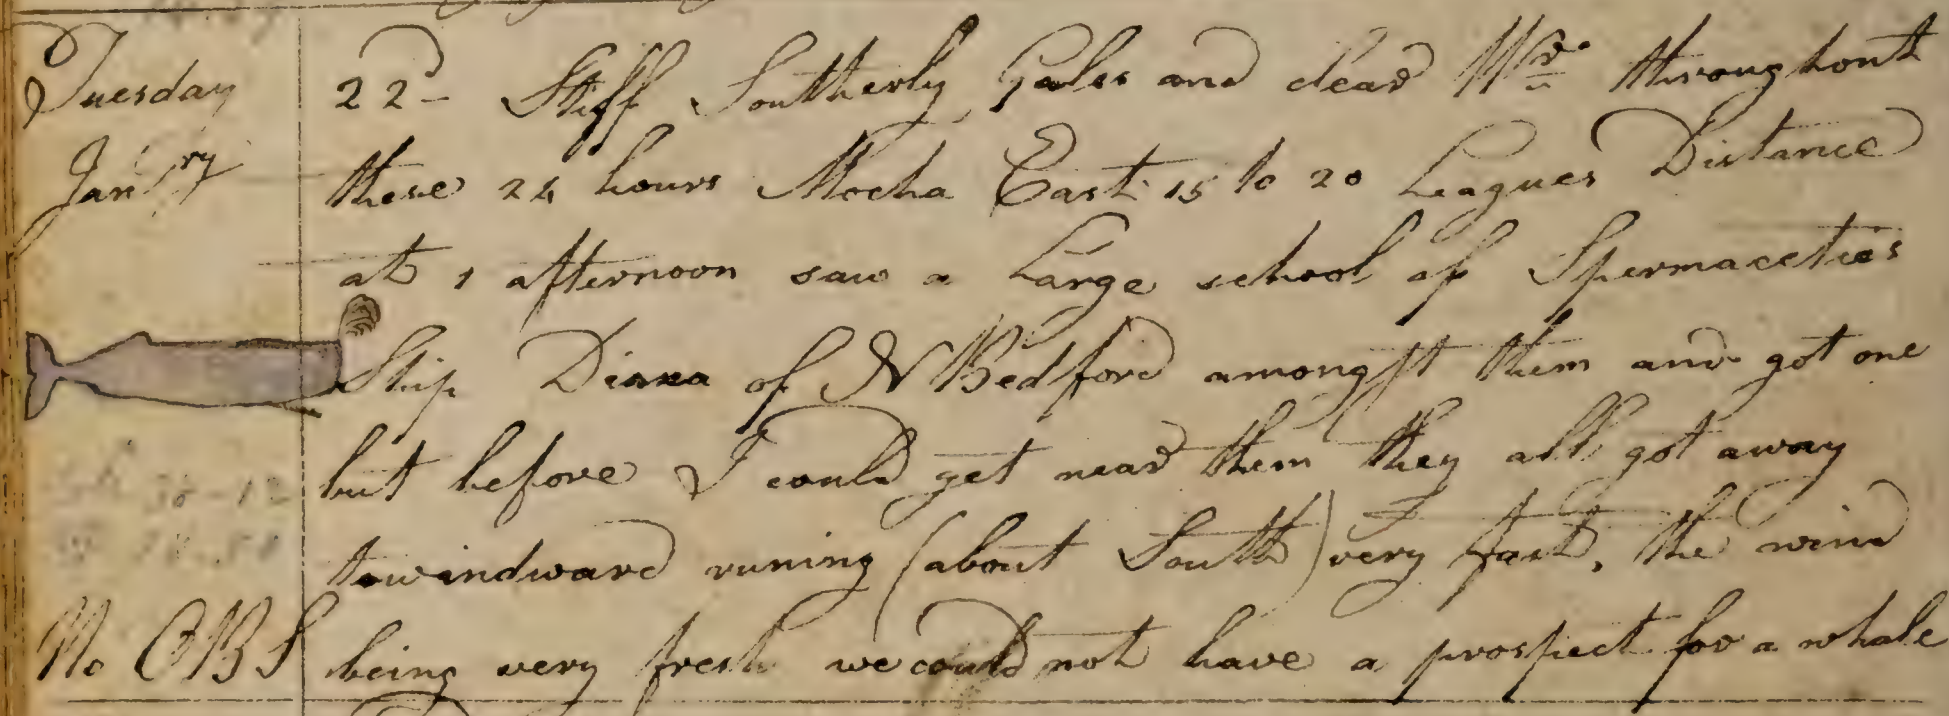 Tuesday 22d Stiff Southerly Gales and clear Wr. throughout
Jan ry these 24 hours Mocha East 15 to 20 Leagues Distance
at 1 afternoon saw a Large school of Spermaceties
Ship Diana of N Bedford amongst them and got one
but before I could get near them they all got away
towindward runing (about South) very fast, the wind
No OBS being very fresh we could not have a prospect for a whale